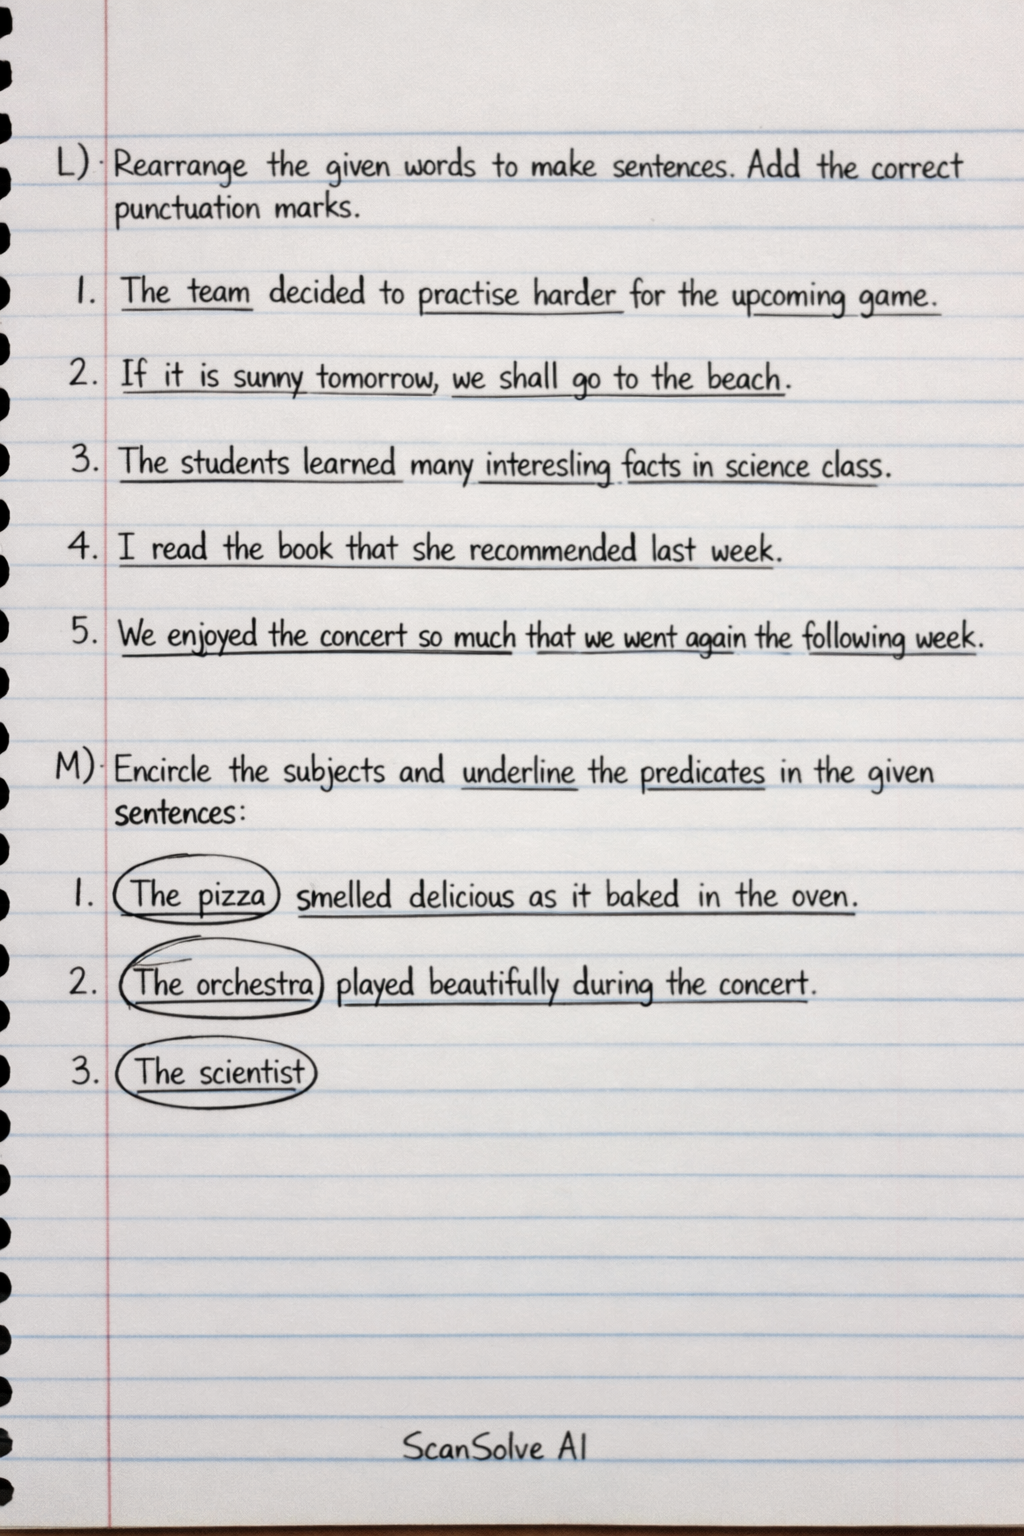 L) Rearrange the given words to make sentences. Add the correct
punctuation marks.
1. The team decided to practise harder for the upcoming game.
2. If it is sunny tomorrow, we shall go to the beach.
3. The students learned many interesling facts in science class.
4. I read the book that she recommended last week.
5. We enjoyed the concert so much that we went again the following week.
M) Encircle the subjects and underline the predicates in the given
sentences:
1. The pizza smelled delicious as it baked in the oven.
2. The orchestra played beautifully during the concert.
3. The scientist
ScanSolve AI